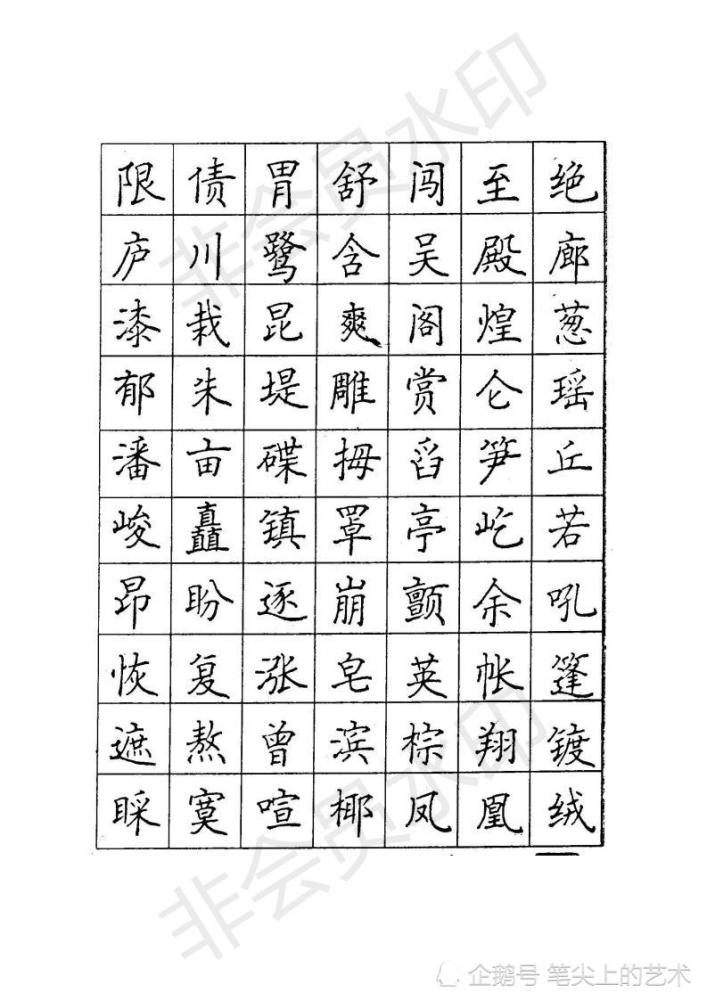 限债胃舒闯至绝
庐川鹭含吴殿廊
漆栽昆爽阁煌葱
郁朱堤雕赏仑瑶
潘亩碟拇舀笋丘
峻矗镇罩亭屹若
昂盼逐崩颤余吼
恢复涨皂英帐篷
遮熬曾滨棕翔镀
睬寞喧椰凤凰绒
非会员水印
非会员水印
企鹅号 笔尖上的艺术